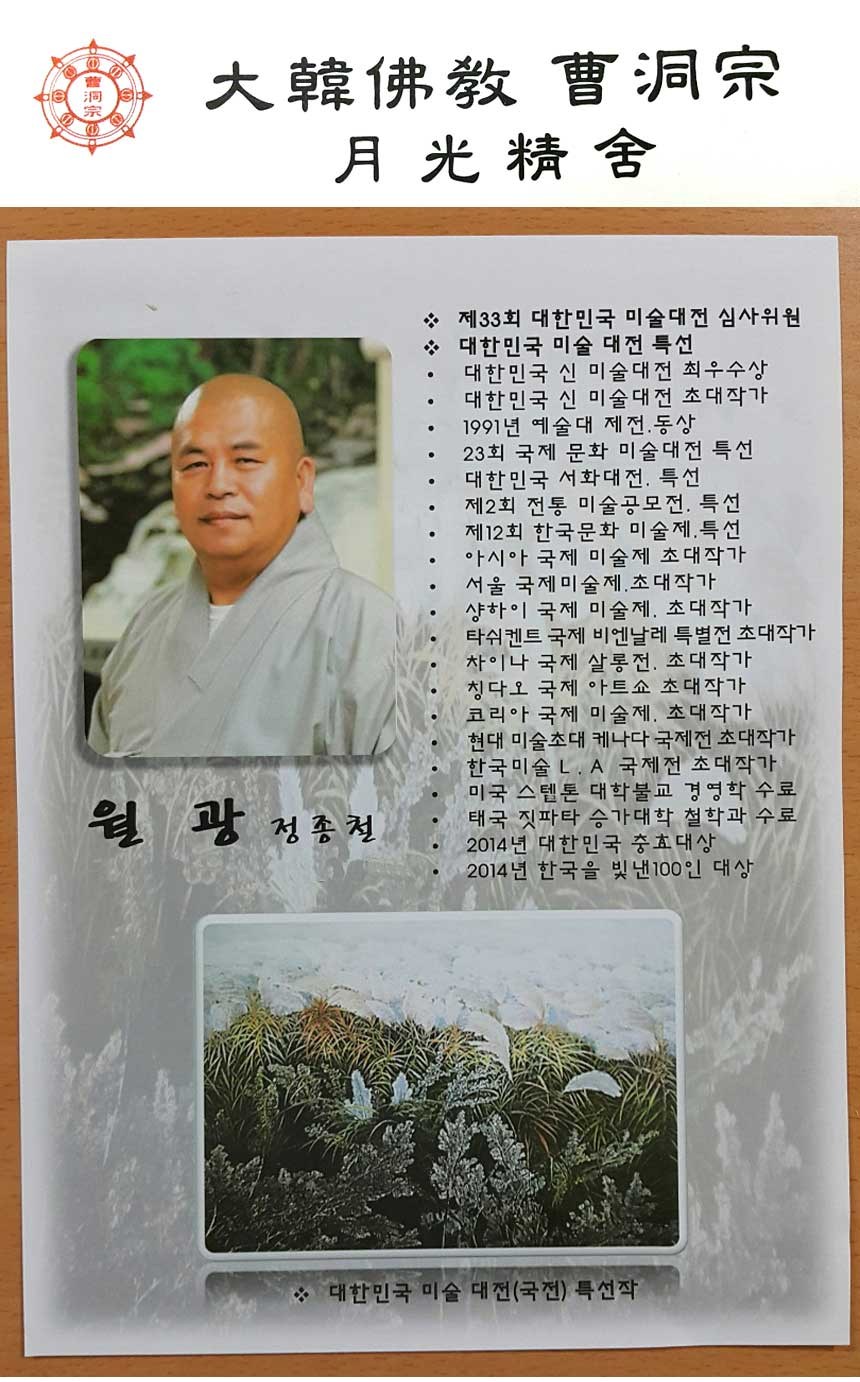 曹
洞
宗
大韓佛教 曹洞宗
月光精舍
❖ 제33회 대한민국 미술대전 심사위원
❖ 대한민국 미술 대전 특선
• 대한민국 신 미술대전 최우수상
• 대한민국 신 미술대전 초대작가
• 1991년 예술대 제전.동상
• 23회 국제 문화 미술대전 특선
• 대한민국 서화대전. 특선
• 제2회 전통 미술공모전. 특선
• 제12회 한국문화 미술제.특선
• 아시아 국제 미술제 초대작가
• 서울 국제미술제.초대작가
• 샹하이 국제 미술제. 초대작가
• 타쉬켄트 국제 비엔날레 특별전 초대작가
• 차이나 국제 살롱전. 초대작가
• 칭다오 국제 아트쇼 초대작가
• 코리아 국제 미술제. 초대작가
• 현대 미술초대 케나다 국제전 초대작가
• 한국미술 L . A 국제전 초대작가
• 미국 스텝톤 대학불교 경영학 수료
• 태국 짓파타 승가대학 철학과 수료
• 2014년 대한민국 충효대상
• 2014년 한국을 빛낸100인 대상
월 광 정종철
❖ 대한민국 미술 대전(국전) 특선작